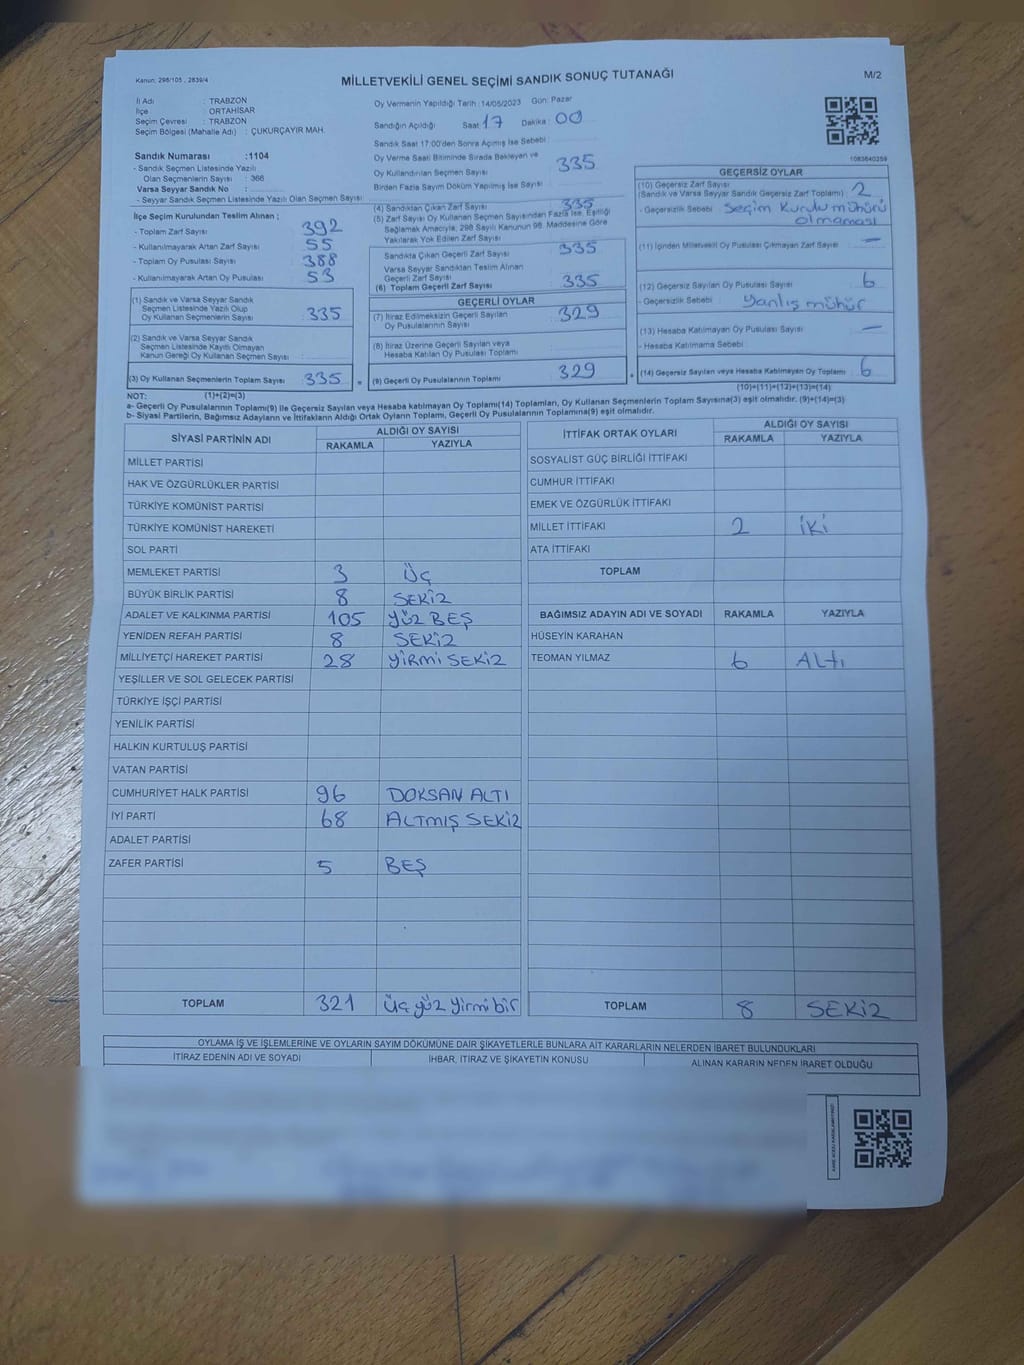 Kanun: 298/105 , 2839/4
MİLLETVEKİLİ GENEL SEÇİMİ SANDIK SONUÇ TUTANAĞI
M/2
İl Adı : TRABZON
İlçe : ORTAHİSAR
Seçim Çevresi : TRABZON
Seçim Bölgesi (Mahalle Adı) : ÇUKURÇAYIR MAH.
Sandık Numarası :1104
- Sandık Seçmen Listesinde Yazılı
Olan Seçmenlerin Sayısı : 366
Varsa Seyyar Sandık No :
- Seyyar Sandık Seçmen Listesinde Yazılı Olan Seçmen Sayısı :
İlçe Seçim Kurulundan Teslim Alınan ;
- Toplam Zarf Sayısı 392
- Kullanılmayarak Artan Zarf Sayısı 55
- Toplam Oy Pusulası 388
- Kullanılmayarak Artan Oy Pusulası 53
(1) Sandık ve Varsa Seyyar Sandık
Seçmen Listesinde Yazılı Olup
Oy Kullanan Seçmenlerin Sayısı 335
(2) Sandık ve Varsa Seyyar Sandık
Seçmen Listesinde Kayıtlı Olmayan
Kanun Gereği Oy Kullanan Seçmen Sayısı :
(3) Oy Kullanan Seçmenlerin Toplam Sayısı 335 =
Oy Vermenin Yapıldığı Tarih :14/05/2023 Gün: Pazar
Sandığın Açıldığı Saat 17 Dakika : 00
Sandık Saat 17:00'den Sonra Açılmış İse Sebebi :
Oy Verme Saati Bitiminde Sırada Bekleyen ve
Oy Kullandırılan Seçmen Sayısı 335
Birden Fazla Sayım Döküm Yapılmış İse Sayısı :
(4) Sandıktan Çıkan Zarf Sayısı 335
(5) Zarf Sayısı Oy Kullanan Seçmen Sayısından Fazla İse, Eşitliği
Sağlamak Amacıyla, 298 Sayılı Kanunun 98. Maddesine Göre
Yakılarak Yok Edilen Zarf Sayısı
Sandıkta Çıkan Geçerli Zarf Sayısı 335
Varsa Seyyar Sandıktan Teslim Alınan
Geçerli Zarf Sayısı
(6) Toplam Geçerli Zarf Sayısı 335
GEÇERLİ OYLAR
(7) İtiraz Edilmeksizin Geçerli Sayılan
Oy Pusulalarının Sayısı 329
(8) İtiraz Üzerine Geçerli Sayılan veya
Hesaba Katılan Oy Pusulası Toplamı
(9) Geçerli Oy Pusulalarının Toplamı 329 +
1083640259
GEÇERSİZ OYLAR
(10) Geçersiz Zarf Sayısı
(Sandık ve Varsa Seyyar Sandık Geçersiz Zarf Toplamı) 2
- Geçersizlik Sebebi : Seçim Kurulu mühürü
olmaması
(11) İçinden Milletvekili Oy Pusulası Çıkmayan Zarf Sayısı —
(12) Geçersiz Sayılan Oy Pusulası Sayısı 6
- Geçersizlik Sebebi : Yanlış mühür
(13) Hesaba Katılmayan Oy Pusulası Sayısı —
- Hesaba Katılmama Sebebi :
(14) Geçersiz Sayılan veya Hesaba Katılmayan Oy Toplamı 6
(10)+(11)+(12)+(13)=(14)
NOT: (1)+(2)=(3)
a- Geçerli Oy Pusulalarının Toplamı(9) ile Geçersiz Sayılan veya Hesaba katılmayan Oy Toplamı(14) Toplamları, Oy Kullanan Seçmenlerin Toplam Sayısına(3) eşit olmalıdır. (9)+(14)=(3)
b- Siyasi Partilerin, Bağımsız Adayların ve İttifakların Aldığı Ortak Oyların Toplamı, Geçerli Oy Pusulalarının Toplamına(9) eşit olmalıdır.
SİYASİ PARTİNİN ADI ALDIĞI OY SAYISI
RAKAMLA YAZIYLA
MİLLET PARTİSİ
HAK VE ÖZGÜRLÜKLER PARTİSİ
TÜRKİYE KOMÜNİST PARTİSİ
TÜRKİYE KOMÜNİST HAREKETİ
SOL PARTİ
MEMLEKET PARTİSİ 3 ÜÇ
BÜYÜK BİRLİK PARTİSİ 8 SEKİZ
ADALET VE KALKINMA PARTİSİ 105 YÜZ BEŞ
YENİDEN REFAH PARTİSİ 8 SEKİZ
MİLLİYETÇİ HAREKET PARTİSİ 28 YİRMİ SEKİZ
YEŞİLLER VE SOL GELECEK PARTİSİ
TÜRKİYE İŞÇİ PARTİSİ
YENİLİK PARTİSİ
HALKIN KURTULUŞ PARTİSİ
VATAN PARTİSİ
CUMHURİYET HALK PARTİSİ 96 DOKSAN ALTI
İYİ PARTİ 68 ALTMIŞ SEKİZ
ADALET PARTİSİ
ZAFER PARTİSİ 5 BEŞ
TOPLAM 321 Üç yüz yirmi bir
İTTİFAK ORTAK OYLARI ALDIĞI OY SAYISI
RAKAMLA YAZIYLA
SOSYALİST GÜÇ BİRLİĞİ İTTİFAKI
CUMHUR İTTİFAKI
EMEK VE ÖZGÜRLÜK İTTİFAKI
MİLLET İTTİFAKI 2 İKİ
ATA İTTİFAKI
TOPLAM
BAĞIMSIZ ADAYIN ADI VE SOYADI RAKAMLA YAZIYLA
HÜSEYİN KARAHAN
TEOMAN YILMAZ 6 ALTI
TOPLAM 8 SEKİZ
OYLAMA İŞ VE İŞLEMLERİNE VE OYLARIN SAYIM DÖKÜMÜNE DAİR ŞİKAYETLERLE BUNLARA AİT KARARLARIN NELERDEN İBARET BULUNDUKLARI
İTİRAZ EDENİN ADI VE SOYADI İHBAR, İTİRAZ VE ŞİKAYETİN KONUSU ALINAN KARARIN NEDEN İBARET OLDUĞU